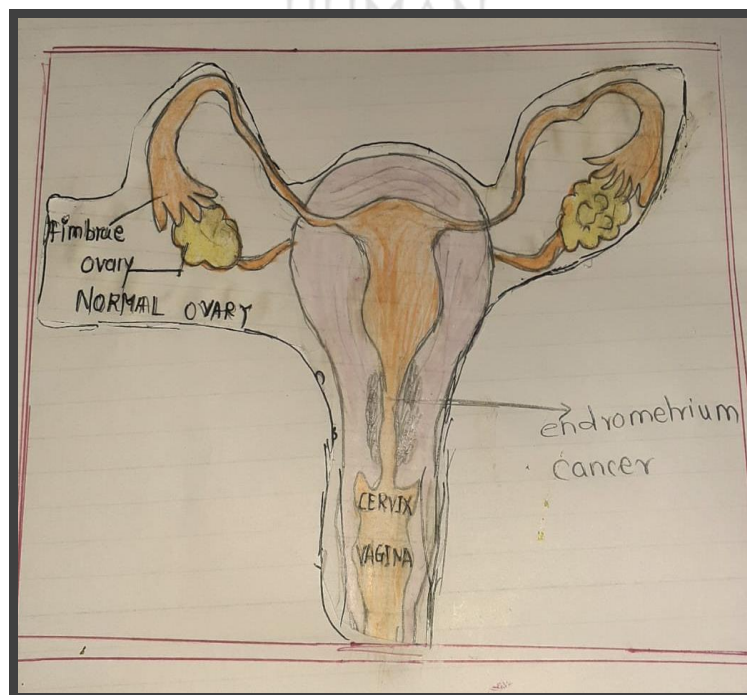 fimbrae
ovary
NORMAL OVARY
endrometrium
cancer
CERVIX
VAGINA